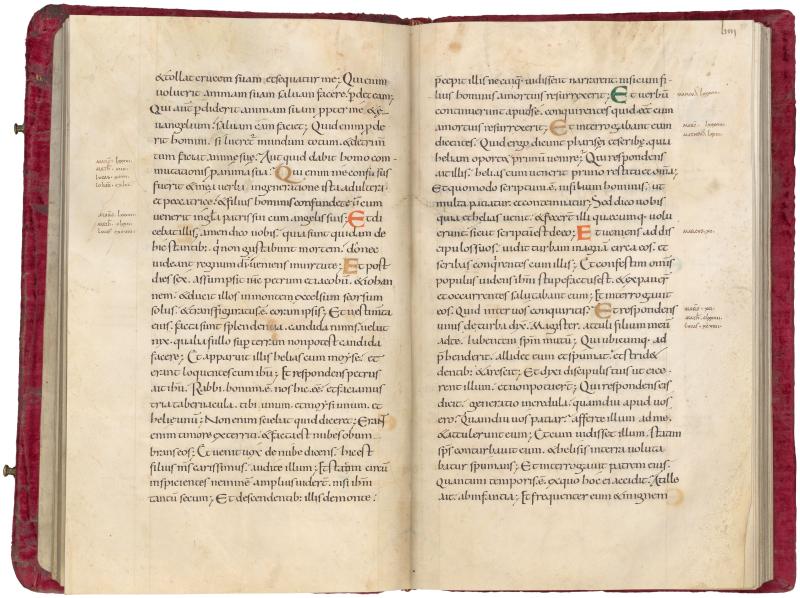 & tollat crucem suam, et sequatur me; Qui enim
voluerit animam suam salvam facere, p̄det eam;
Qui aut̄ p̄diderit animam suam, ppter me, & e
vangelium, salvam eam faciet; Quid enim p̄de
rit homini, si lucret̄ mundum totum, & detrim̄
tum faciat anime sue; Aut quid dabit homo com
mutacionis p̄ anima sua; Qui enim me confusus
fuerit, & mea verba, in generatione ista adultera
et peccatrice, & filius hominis confundet̄ eum
venerit in gl̄a patris sui cum angelis suis; Et di
cebat illis, amen dico vobis, quia sunt quidam de
hic stantib;, qui non gustabunt mortem, donec
videant regnum dī veniens in virtute; Et post
dies sex, assumpsit ihs̄ petrum et iacobū, & iohan
nem, & ducit illos in montem excelsum seorsum
solus, & transfiguratus ē coram ipsis; Et vestimta
eius, facta sunt splendentia, candida nimis, velut
nix, qualia fullo super terram non potest candida
facere; Et apparuit illis helias cum moyse, et
erant loquentes cum ihū; Et respondens petrus
ait ihū, Rabbi, bonum ē, nos hic eē, et faciamus
tria tabernacula, tibi unum, et moysi unum, et
heli unum; Non enim sciebat quid diceret; Erant
enim timore exterriti, & facta est nubes obum
brans eos; Et venit vox de nube dicens, hic est
filius m̄s carissimus, audite illum; Et statim circū
inspicientes neminē amplius viderunt, nisi ihm̄
tantū secum; Et descendentib; illis de monte,
p̄cepit illis ne cuiq̄ vidissent narrarent, nisi cum fi
lius hominis a mortuis resurrexerit; Et verbū
continuerunt apud se, conquirentes quid ēet cum
a mortuis resurrexerit; Et interrogabant eum
dicentes, Quid ergo dicunt pharisei et scribę, quia
heliam oporteat primū venire; Qui respondens
ait illis, helias cum venerit primo restituet om̄ia;
Et quomodo scriptum ē, in filium hominis, ut
multa patiatur, et contemnatur; Sed dico vobis
quia et helias venit, & fecerunt illi quęcumq; volu
erunt, sicut scriptū est de eo; Et veniens ad dis
cipulos suos, vidit turbam magnā circa eos, et
scribas conquirentes cum illis; Et confestim omīs
populus videns ihm̄ stupefactus est, & expaverunt
et occurrentes salutabant eum; Et interrogavit
eos, Quid inter vos conquiritis; Et respondens
unus de turba dix̄, Magister, attuli filium meū
ad te, habentem spm̄ mutū; Qui ubicumq; ad
p̄henderit, allidet eum, et spumat, et stridet
dentib;, & arescit; Et dixi discipulis tuis ut eice
rent illum, et non potuerunt; Qui respondens eis
dicit, O generatio incredula, quamdiu apud vos
ero; Quamdiu vos patiar; afferte illum ad me,
& attulerunt eum; Et cum vidisset illum, statim
sps̄ conturbavit eum, & helisus in terra voluta
batur spumans; Et interrogavit patrem eius,
Quantum temporis ē, ex quo hoc ei accidit; At ille
ait, ab infantia; Et frequenter eum & in ignem